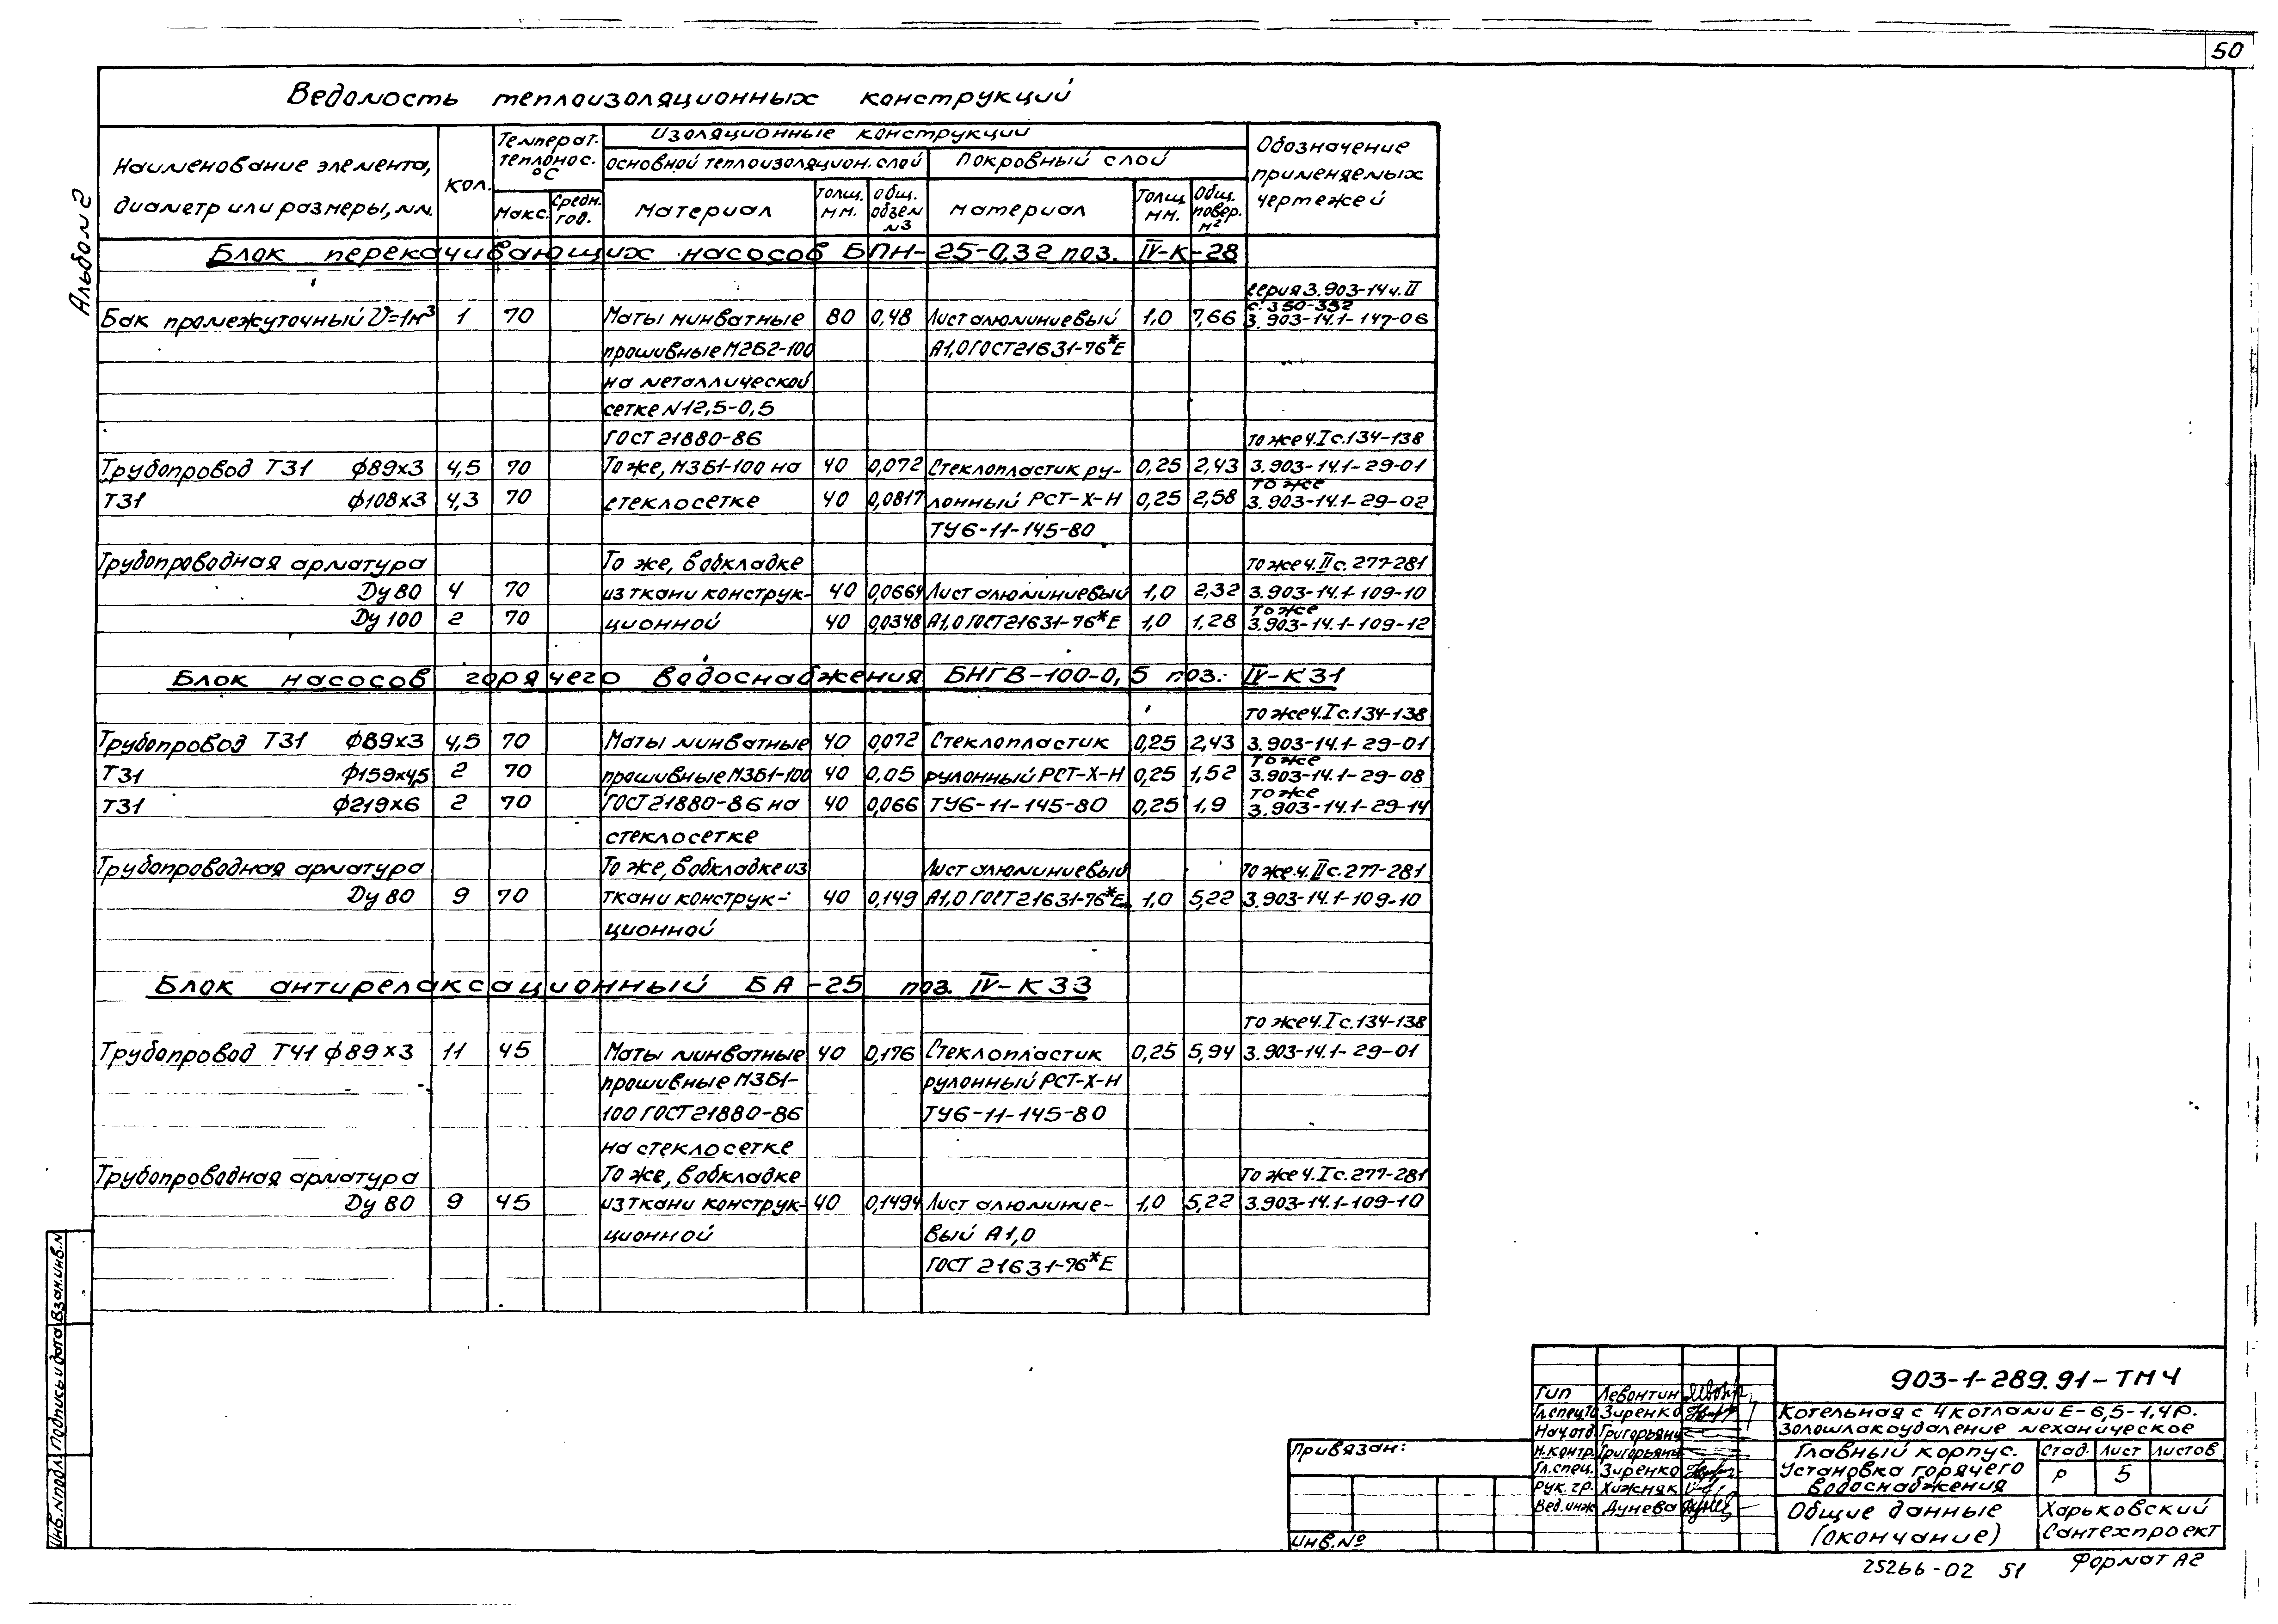 50
Альбом 2
Ведомость теплоизоляционных конструкций
Наименование элемента, диаметр или размеры, мм.
Кол.
Температ. теплонос. °С
Макс.
Средн. год.
Изоляционные конструкции
Основной теплоизоляцион. слой
Покровный слой
Материал
Толщ. мм.
Общ. объем м3
Материал
Толщ. мм.
Общ. повер. м2
Обозначение применяемых чертежей
Блок перекачивающих насосов БПН-25-0,32 поз. IV-К-28
серия 3.903-14 ч. II
с. 350-352
Бак промежуточный V=1м3 1 70 Маты минватные 80 0,48 Лист алюминиевый 1,0 7,66 3.903-14.1-147-06
прошивные М2Б2-100 А1,0 ГОСТ 21631-76*Е
на металлической
сетке N12,5-0,5
ГОСТ 21880-86 то же ч. I с. 134-138
Трубопровод Т31 ф89х3 4,5 70 То же, М3Б1-100 на 40 0,072 Стеклопластик ру- 0,25 2,43 3.903-14.1-29-01
то же
Т31 ф108х3 4,3 70 стеклосетке 40 0,0817 лонный РСТ-Х-Н 0,25 2,58 3.903-14.1-29-02
ТУ6-11-145-80
Трубопроводная арматура То же, в обкладке то же ч. II с. 277-281
Ду 80 4 70 из ткани конструк- 40 0,0664 Лист алюминиевый 1,0 2,32 3.903-14.1-109-10
то же
Ду 100 2 70 ционной 40 0,0348 А1,0 ГОСТ 21631-76*Е 1,0 1,28 3.903-14.1-109-12
Блок насосов горячего водоснабжения БНГВ-100-0,5 поз. IV-К31
то же ч. I с. 134-138
Трубопровод Т31 ф89х3 4,5 70 Маты минватные 40 0,072 Стеклопластик 0,25 2,43 3.903-14.1-29-01
то же
Т31 ф159х4,5 2 70 прошивные М3Б1-100 40 0,05 рулонный РСТ-Х-Н 0,25 1,52 3.903-14.1-29-08
то же
Т31 ф219х6 2 70 ГОСТ 21880-86 на 40 0,066 ТУ6-11-145-80 0,25 1,9 3.903-14.1-29-14
стеклосетке
Трубопроводная арматура То же, в обкладке из Лист алюминиевый То же ч. II с. 277-281
Ду 80 9 70 ткани конструк- 40 0,149 А1,0 ГОСТ 21631-76*Е 1,0 5,22 3.903-14.1-109-10
ционной
Блок антирелаксационный БА-25 поз. IV-К33
то же ч. I с. 134-138
Трубопровод Т41 ф89х3 11 45 Маты минватные 40 0,176 Стеклопластик 0,25 5,94 3.903-14.1-29-01
прошивные М3Б1- рулонный РСТ-Х-Н
100 ГОСТ 21880-86 ТУ6-11-145-80
на стеклосетке
Трубопроводная арматура То же, в обкладке То же ч. I с. 277-281
Ду 80 9 45 из ткани конструк- 40 0,1494 Лист алюминие- 1,0 5,22 3.903-14.1-109-10
ционной вый А1,0
ГОСТ 21631-76*Е
Инв. N подл. Подпись и дата Взам. инв. N
Привязан:
Инв. №
ГИП Левонтин
Гл. спец. То Зиренко
Нач. отд. Григорьянц
Н. контр. Григорьянц
Гл. спец. Зиренко
Рук. гр. Хижняк
Вед. инж. Дунева
903-1-289.91-ТМ4
Котельная с 4 котлами Е-6,5-1,4Р.
Золошлакоудаление механическое
Главный корпус.
Установка горячего
водоснабжения
Стад. Лист Листов
Р 5
Общие данные
(окончание)
Харьковский
Сантехпроект
25266-02 51
Формат А2